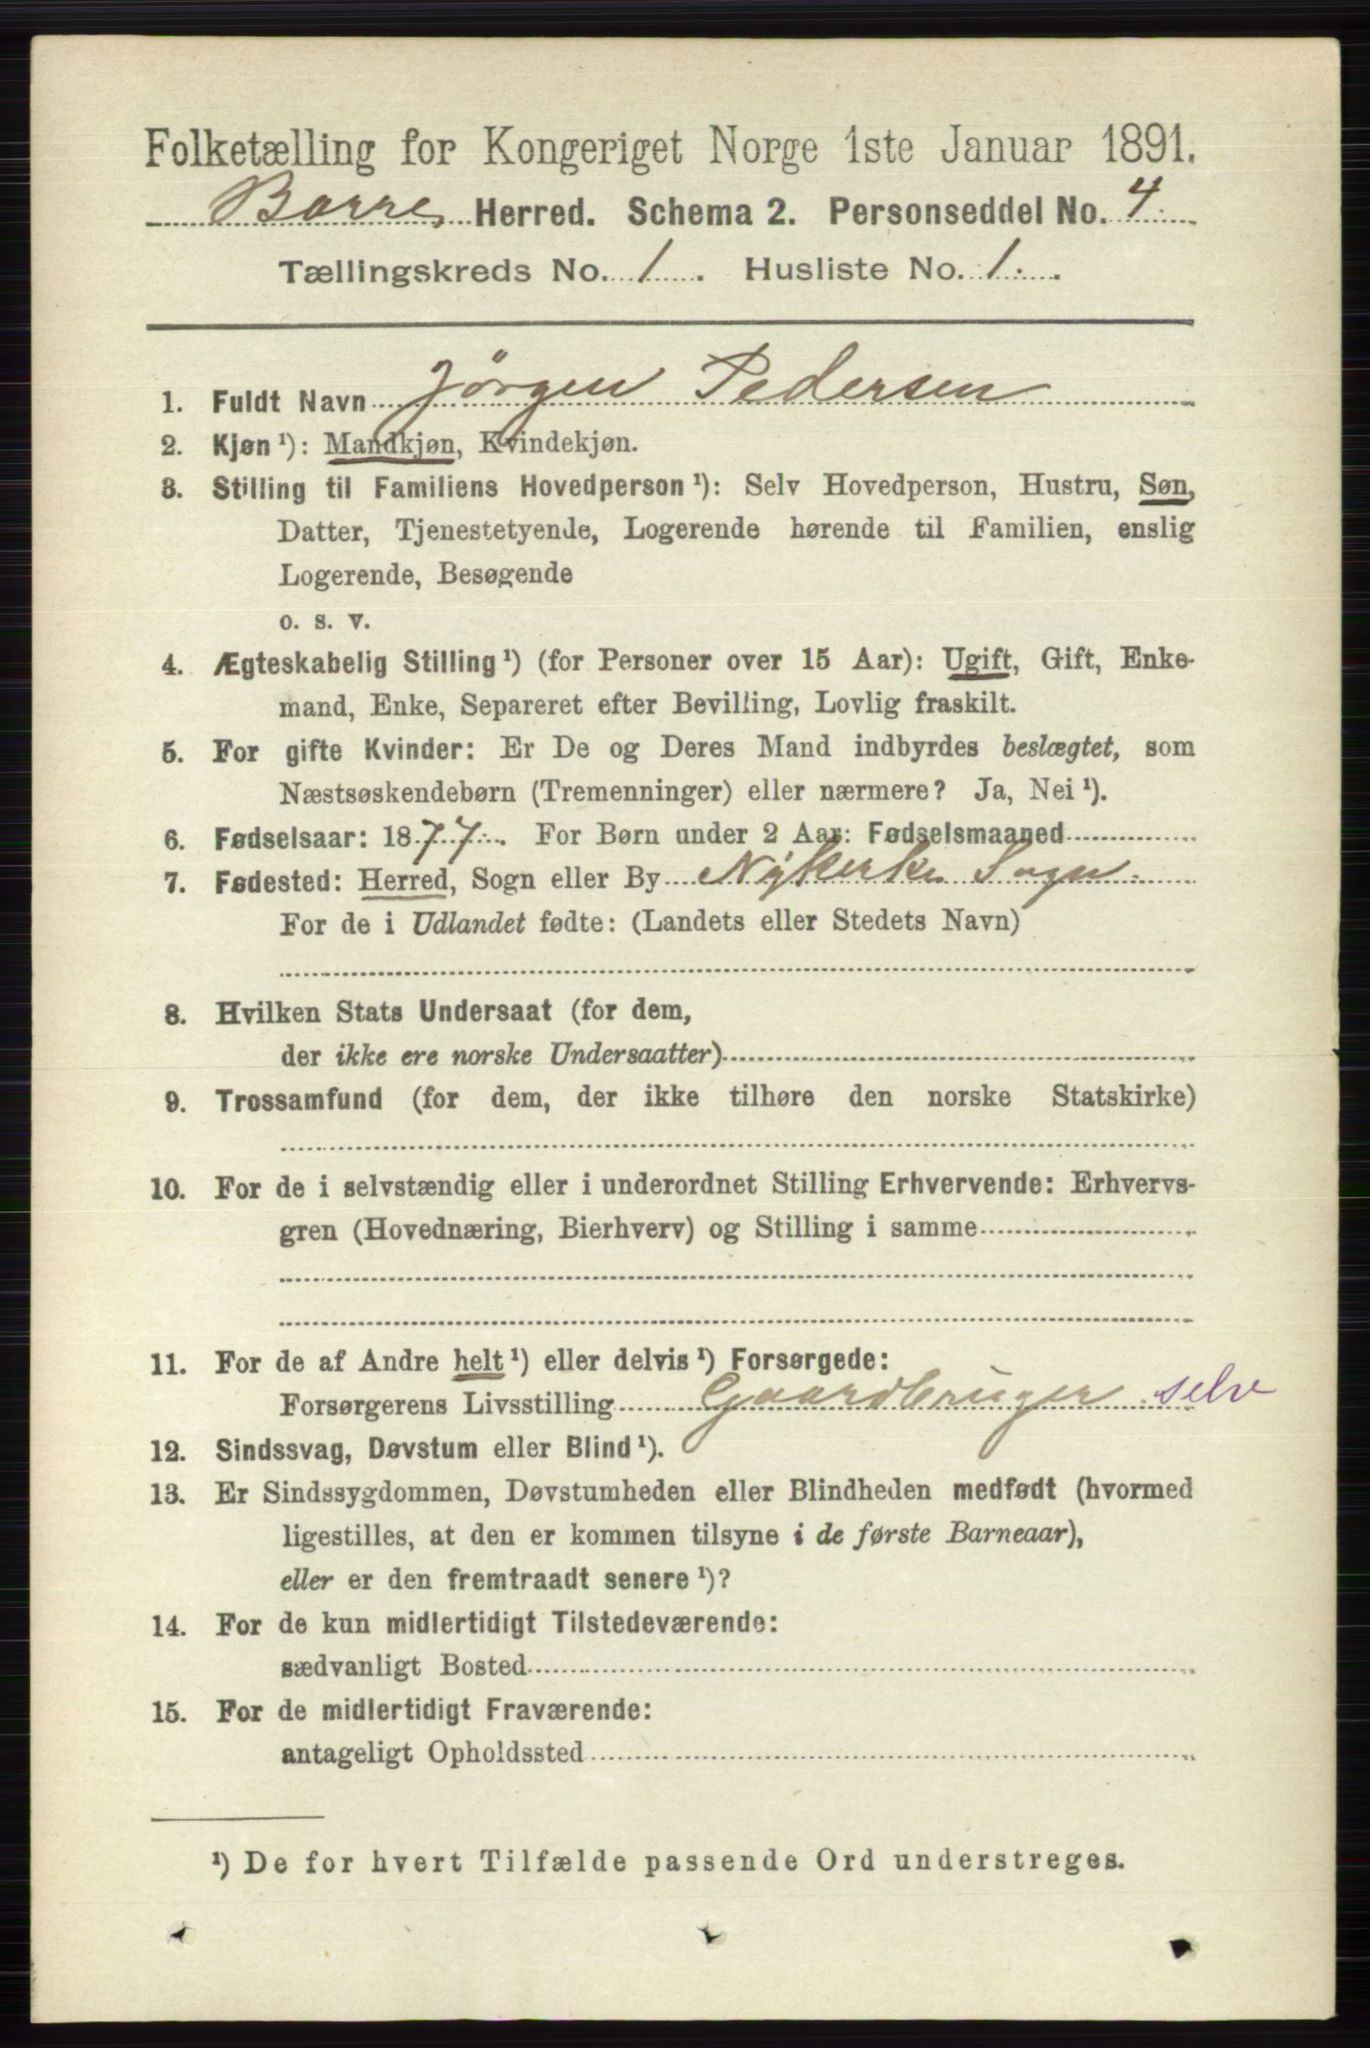 Folketælling for Kongeriget Norge 1ste Januar 1891.
Borre Herred. Schema 2. Personseddel No. 4.
Tællingskreds No. 1. Husliste No. 1.
1. Fuldt Navn Jörgen Pedersen
2. Kjøn ¹): Mandkjøn, Kvindekjøn.
3. Stilling til Familiens Hovedperson ¹): Selv Hovedperson, Hustru, Søn,
Datter, Tjenestetyende, Logerende hørende til Familien, enslig
Logerende, Besøgende
o. s. v.
4. Ægteskabelig Stilling ¹) (for Personer over 15 Aar): Ugift, Gift, Enke-
mand, Enke, Separeret efter Bevilling, Lovlig fraskilt.
5. For gifte Kvinder: Er De og Deres Mand indbyrdes beslægtet, som
Næstsøskendebørn (Tremenninger) eller nærmere? Ja, Nei ¹).
6. Fødselsaar: 1877. For Børn under 2 Aar: Fødselsmaaned
7. Fødested: Herred, Sogn eller By Nykirke Sogn.
For de i Udlandet fødte: (Landets eller Stedets Navn)
8. Hvilken Stats Undersaat (for dem,
der ikke ere norske Undersaatter)
9. Trossamfund (for dem, der ikke tilhøre den norske Statskirke)
10. For de i selvstændig eller i underordnet Stilling Erhvervende: Erhvervs-
gren (Hovednæring, Bierhverv) og Stilling i samme
11. For de af Andre helt ¹) eller delvis ¹) Forsørgede:
Forsørgerens Livsstilling Gaardbruger selv
12. Sindssvag, Døvstum eller Blind ¹).
13. Er Sindssygdommen, Døvstumheden eller Blindheden medfødt (hvormed
ligestilles, at den er kommen tilsyne i de første Barneaar),
eller er den fremtraadt senere ¹)?
14. For de kun midlertidigt Tilstedeværende:
sædvanligt Bosted
15. For de midlertidigt Fraværende:
antageligt Opholdssted
¹) De for hvert Tilfælde passende Ord understreges.